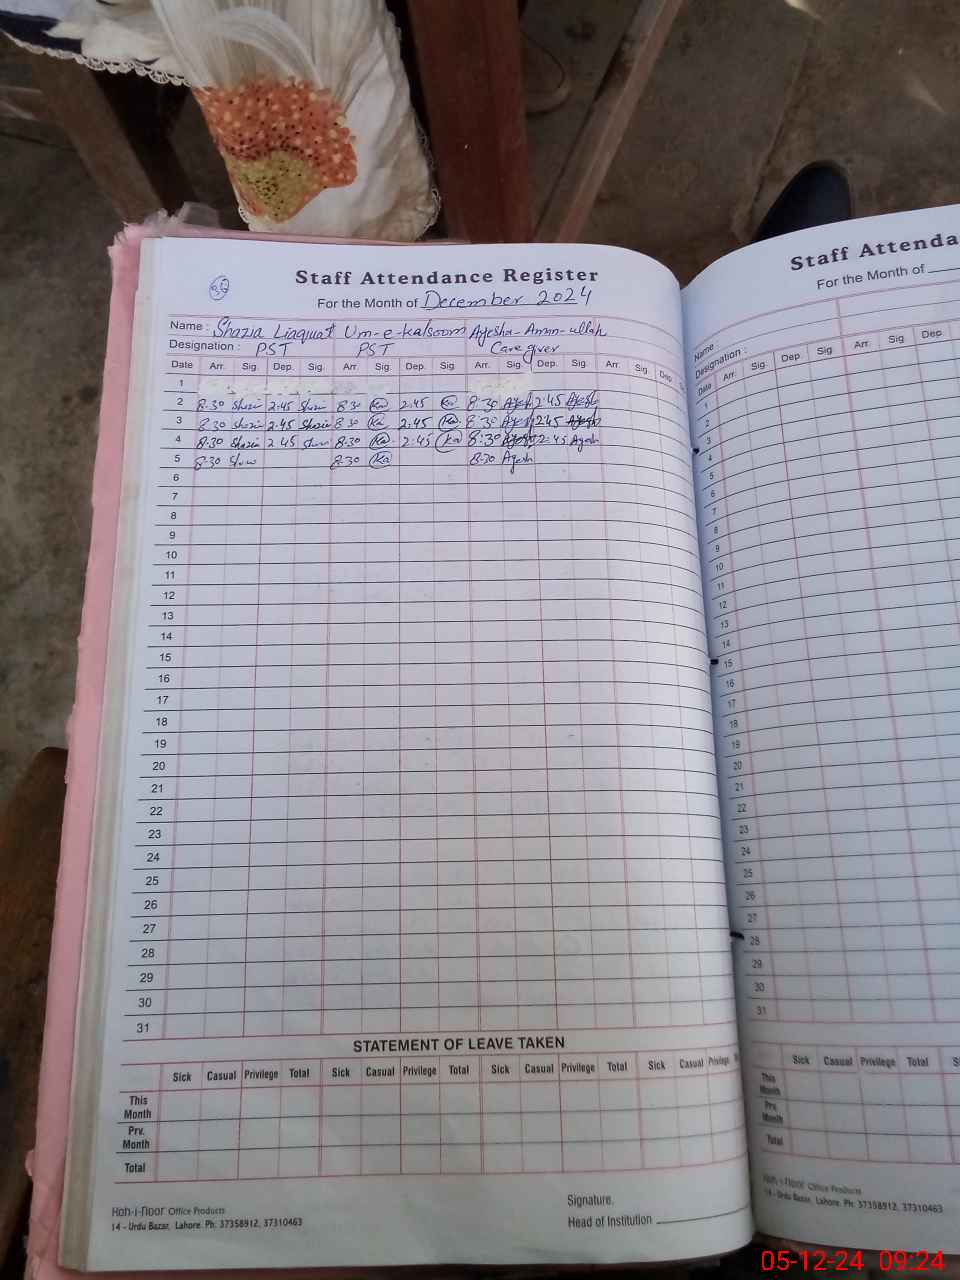 Staff Attendance Register
For the Month of December 2024
Name : Shazia Liaquat Um-e-kalsoom Ayesha-Aman-ullah
Designation : PST PST Care giver
Date Arr. Sig. Dep. Sig. Arr. Sig. Dep. Sig. Arr. Sig. Dep. Sig. Arr. Sig. Dep.
1
2 8:30 Shazia 2:45 Shazia 8:30 Ka 2:45 Ka 8:30 Ayesh 2:45 Ayesh
3 8:30 Shazia 2:45 Shazia 8:30 Ka 2:45 Ka 8:30 Ayesh 2:45 Ayesh
4 8:30 Shazia 2:45 8:30 Ka 2:45 Ka 8:30 Ayesh 2:45 Ayesh
5 8:30 8:30 Ka 8:30 Ayesh
6
7
8
9
10
11
12
13
14
15
16
17
18
19
20
21
22
23
24
25
26
27
28
29
30
31
STATEMENT OF LEAVE TAKEN
Sick Casual Privilege Total Sick Casual Privilege Total Sick Casual Privilege Total Sick Casual Privilege
This Month
Prv. Month
Total
Koh-i-noor Office Products
14 - Urdu Bazar, Lahore. Ph: 37358912, 37310463
Signature.
Head of Institution
Staff Attenda
For the Month of
Name :
Designation :
Date Arr. Sig. Dep. Sig. Arr. Sig. Dep.
1
2
3
4
5
6
7
8
9
10
11
12
13
14
15
16
17
18
19
20
21
22
23
24
25
26
27
28
29
30
31
Sick Casual Privilege Total
This Month
Prv. Month
Total
Koh-i-noor Office Products
14 - Urdu Bazar, Lahore. Ph: 37358912, 37310463
05-12-24 09:24